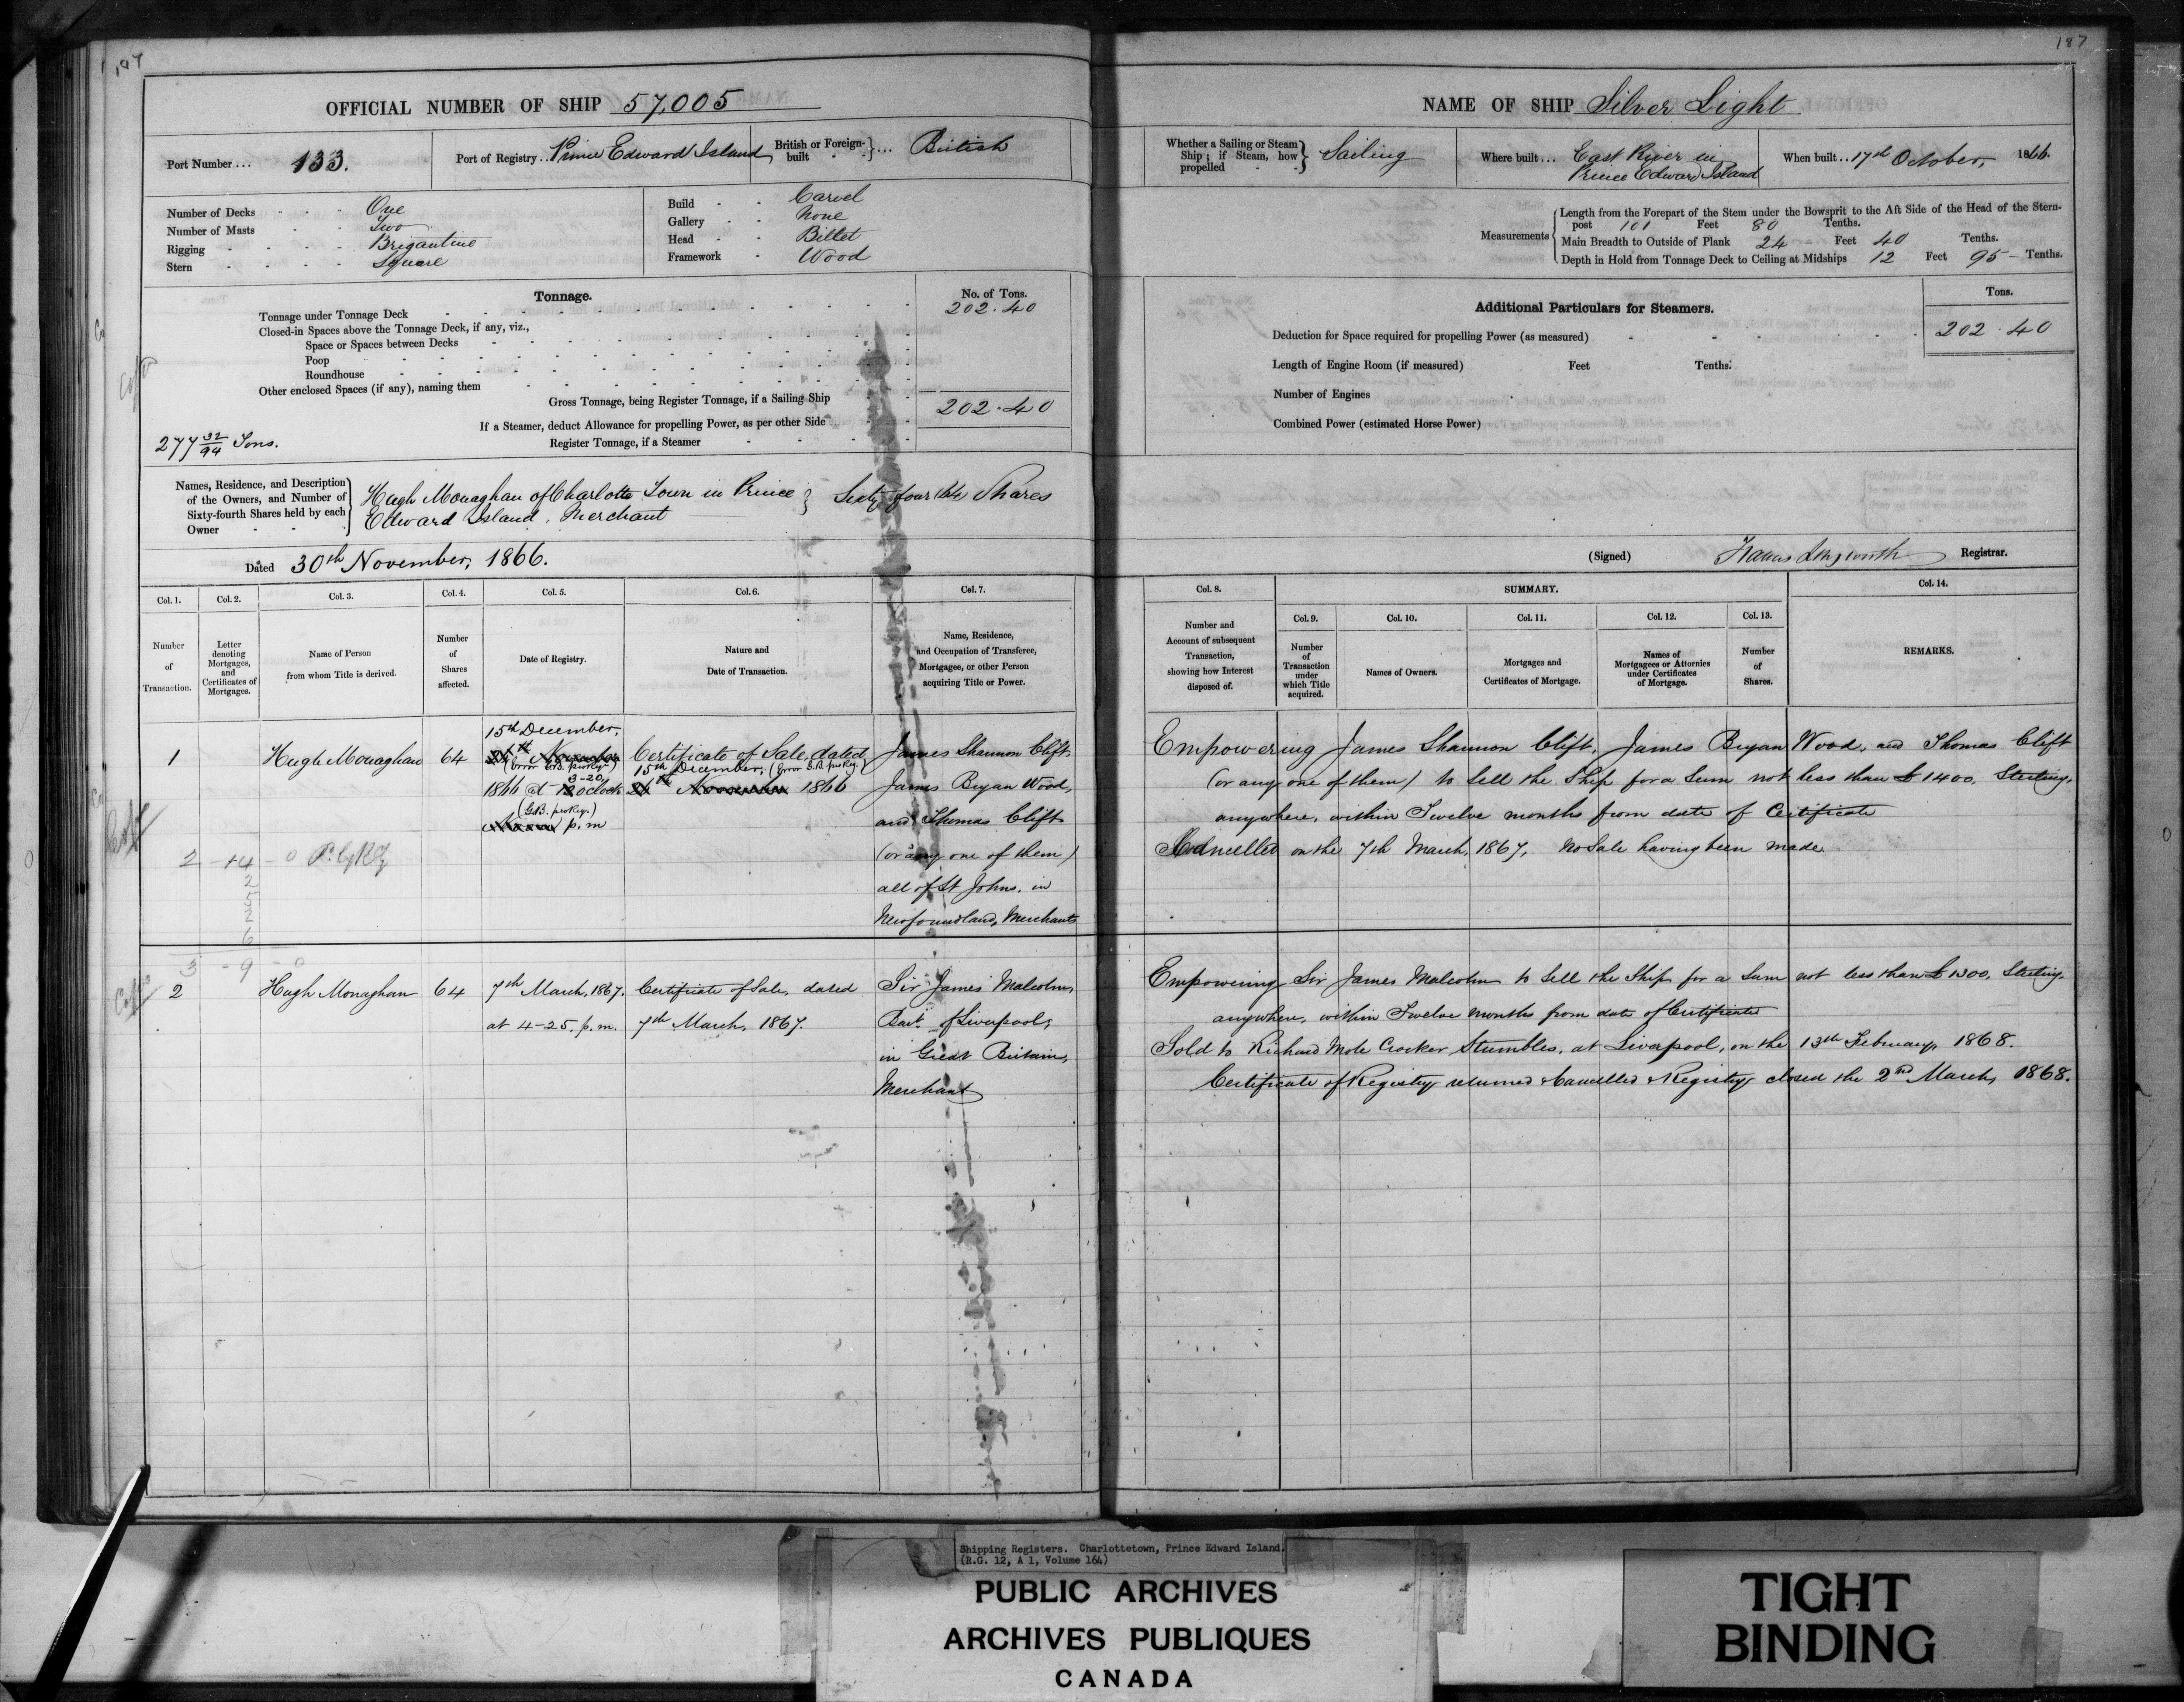 187
OFFICIAL NUMBER OF SHIP 57,005
Port Number ... 133.
Port of Registry .. Prince Edward Island
British or Foreign-built } ... British
Number of Decks - - - One
Number of Masts - - Two
Rigging - - - - Brigantine
Stern - - - - Square
Build - - Carvel
Gallery - - None
Head - - Billet
Framework - Wood
Tonnage.
No. of Tons.
Tonnage under Tonnage Deck 202.40
Closed-in Spaces above the Tonnage Deck, if any, viz.,
Space or Spaces between Decks
Poop
Roundhouse
Other enclosed Spaces (if any), naming them
Gross Tonnage, being Register Tonnage, if a Sailing Ship 202.40
If a Steamer, deduct Allowance for propelling Power, as per other Side
Register Tonnage, if a Steamer
277 32/94 Tons.
Names, Residence, and Description of the Owners, and Number of Sixty-fourth Shares held by each Owner
Hugh Monaghan of Charlotte Town in Prince } Sixty four (64) Shares
Edward Island, Merchant
Dated 30th November, 1866.
Col. 1. Col. 2. Col. 3. Col. 4. Col. 5. Col. 6. Col. 7.
Number of Transaction.
Letter denoting Mortgages, and Certificates of Mortgages.
Name of Person from whom Title is derived.
Number of Shares affected.
Date of Registry.
Nature and Date of Transaction.
Name, Residence, and Occupation of Transferee, Mortgagee, or other Person acquiring Title or Power.
1
Hugh Monaghan
64
15th December,
November
1866 @ 3-20 oclock
p.m
Certificate of Sale, dated
15th December,
November 1866
James Shannon Clift,
James Bryan Wood,
and Thomas Clift
(or any one of them)
all of St Johns, in
Newfoundland, Merchants
2
Hugh Monaghan
64
7th March, 1867.
at 4-25. p.m.
Certificate of Sale, dated
7th March, 1867.
Sir James Malcolm,
Bart. of Liverpool,
in Great Britain,
Merchant
187
NAME OF SHIP Silver Light
Whether a Sailing or Steam Ship; if Steam, how propelled } Sailing
Where built ... East River in
Prince Edward Island
When built .. 17th October, 1866.
Measurements
Length from the Forepart of the Stem under the Bowsprit to the Aft Side of the Head of the Stern-
post 101 Feet 80 Tenths.
Main Breadth to Outside of Plank 24 Feet 40 Tenths.
Depth in Hold from Tonnage Deck to Ceiling at Midships 12 Feet 95 Tenths.
Additional Particulars for Steamers.
Tons.
Deduction for Space required for propelling Power (as measured) 202.40
Length of Engine Room (if measured) Feet Tenths.
Number of Engines
Combined Power (estimated Horse Power)
(Signed) Francis Longworth Registrar.
Col. 8.
SUMMARY.
Col. 14.
Col. 9. Col. 10. Col. 11. Col. 12. Col. 13.
Number and Account of subsequent Transaction, showing how Interest disposed of.
Number of Transaction under which Title acquired.
Names of Owners.
Mortgages and Certificates of Mortgage.
Names of Mortgagees or Attornies under Certificates of Mortgage.
Number of Shares.
REMARKS.
Empowering James Shannon Clift, James Bryan Wood, and Thomas Clift
(or any one of them) to Sell the Ship for a Sum not less than £1400, Sterling,
anywhere, within Twelve months from date of Certificate
Cancelled on the 7th March, 1867, No Sale having been made
Empowering Sir James Malcolm to Sell the Ship for a Sum not less than £1300, Sterling,
anywhere, within Twelve Months from date of Certificate
Sold to Richard Mole Crocker Stumbles, at Liverpool, on the 13th February, 1868.
Certificate of Registry returned & Cancelled & Registry closed the 2nd March, 1868.
Shipping Registers. Charlottetown, Prince Edward Island.
(R.G. 12, A 1, Volume 164)
PUBLIC ARCHIVES
ARCHIVES PUBLIQUES
CANADA
TIGHT
BINDING